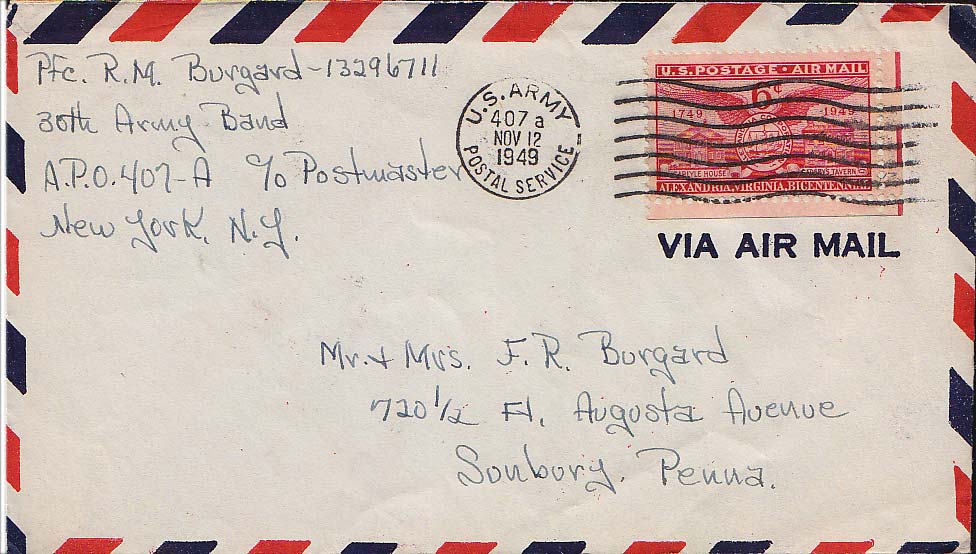 Pfc. R.M. Burgard-13296711
30th Army Band
A.P.O. 407-A c/o Postmaster
New York, N.Y.
U.S. ARMY
407 a
NOV 12
1949
POSTAL SERVICE
U.S. POSTAGE · AIR MAIL
6¢
1749 1949
CARLYLE HOUSE GADSBY'S TAVERN
ALEXANDRIA, VIRGINIA, BICENTENNIAL
VIA AIR MAIL
Mr. + Mrs. F. R. Burgard
720 1/2 Ft. Augusta Avenue
Sunbury, Penna.